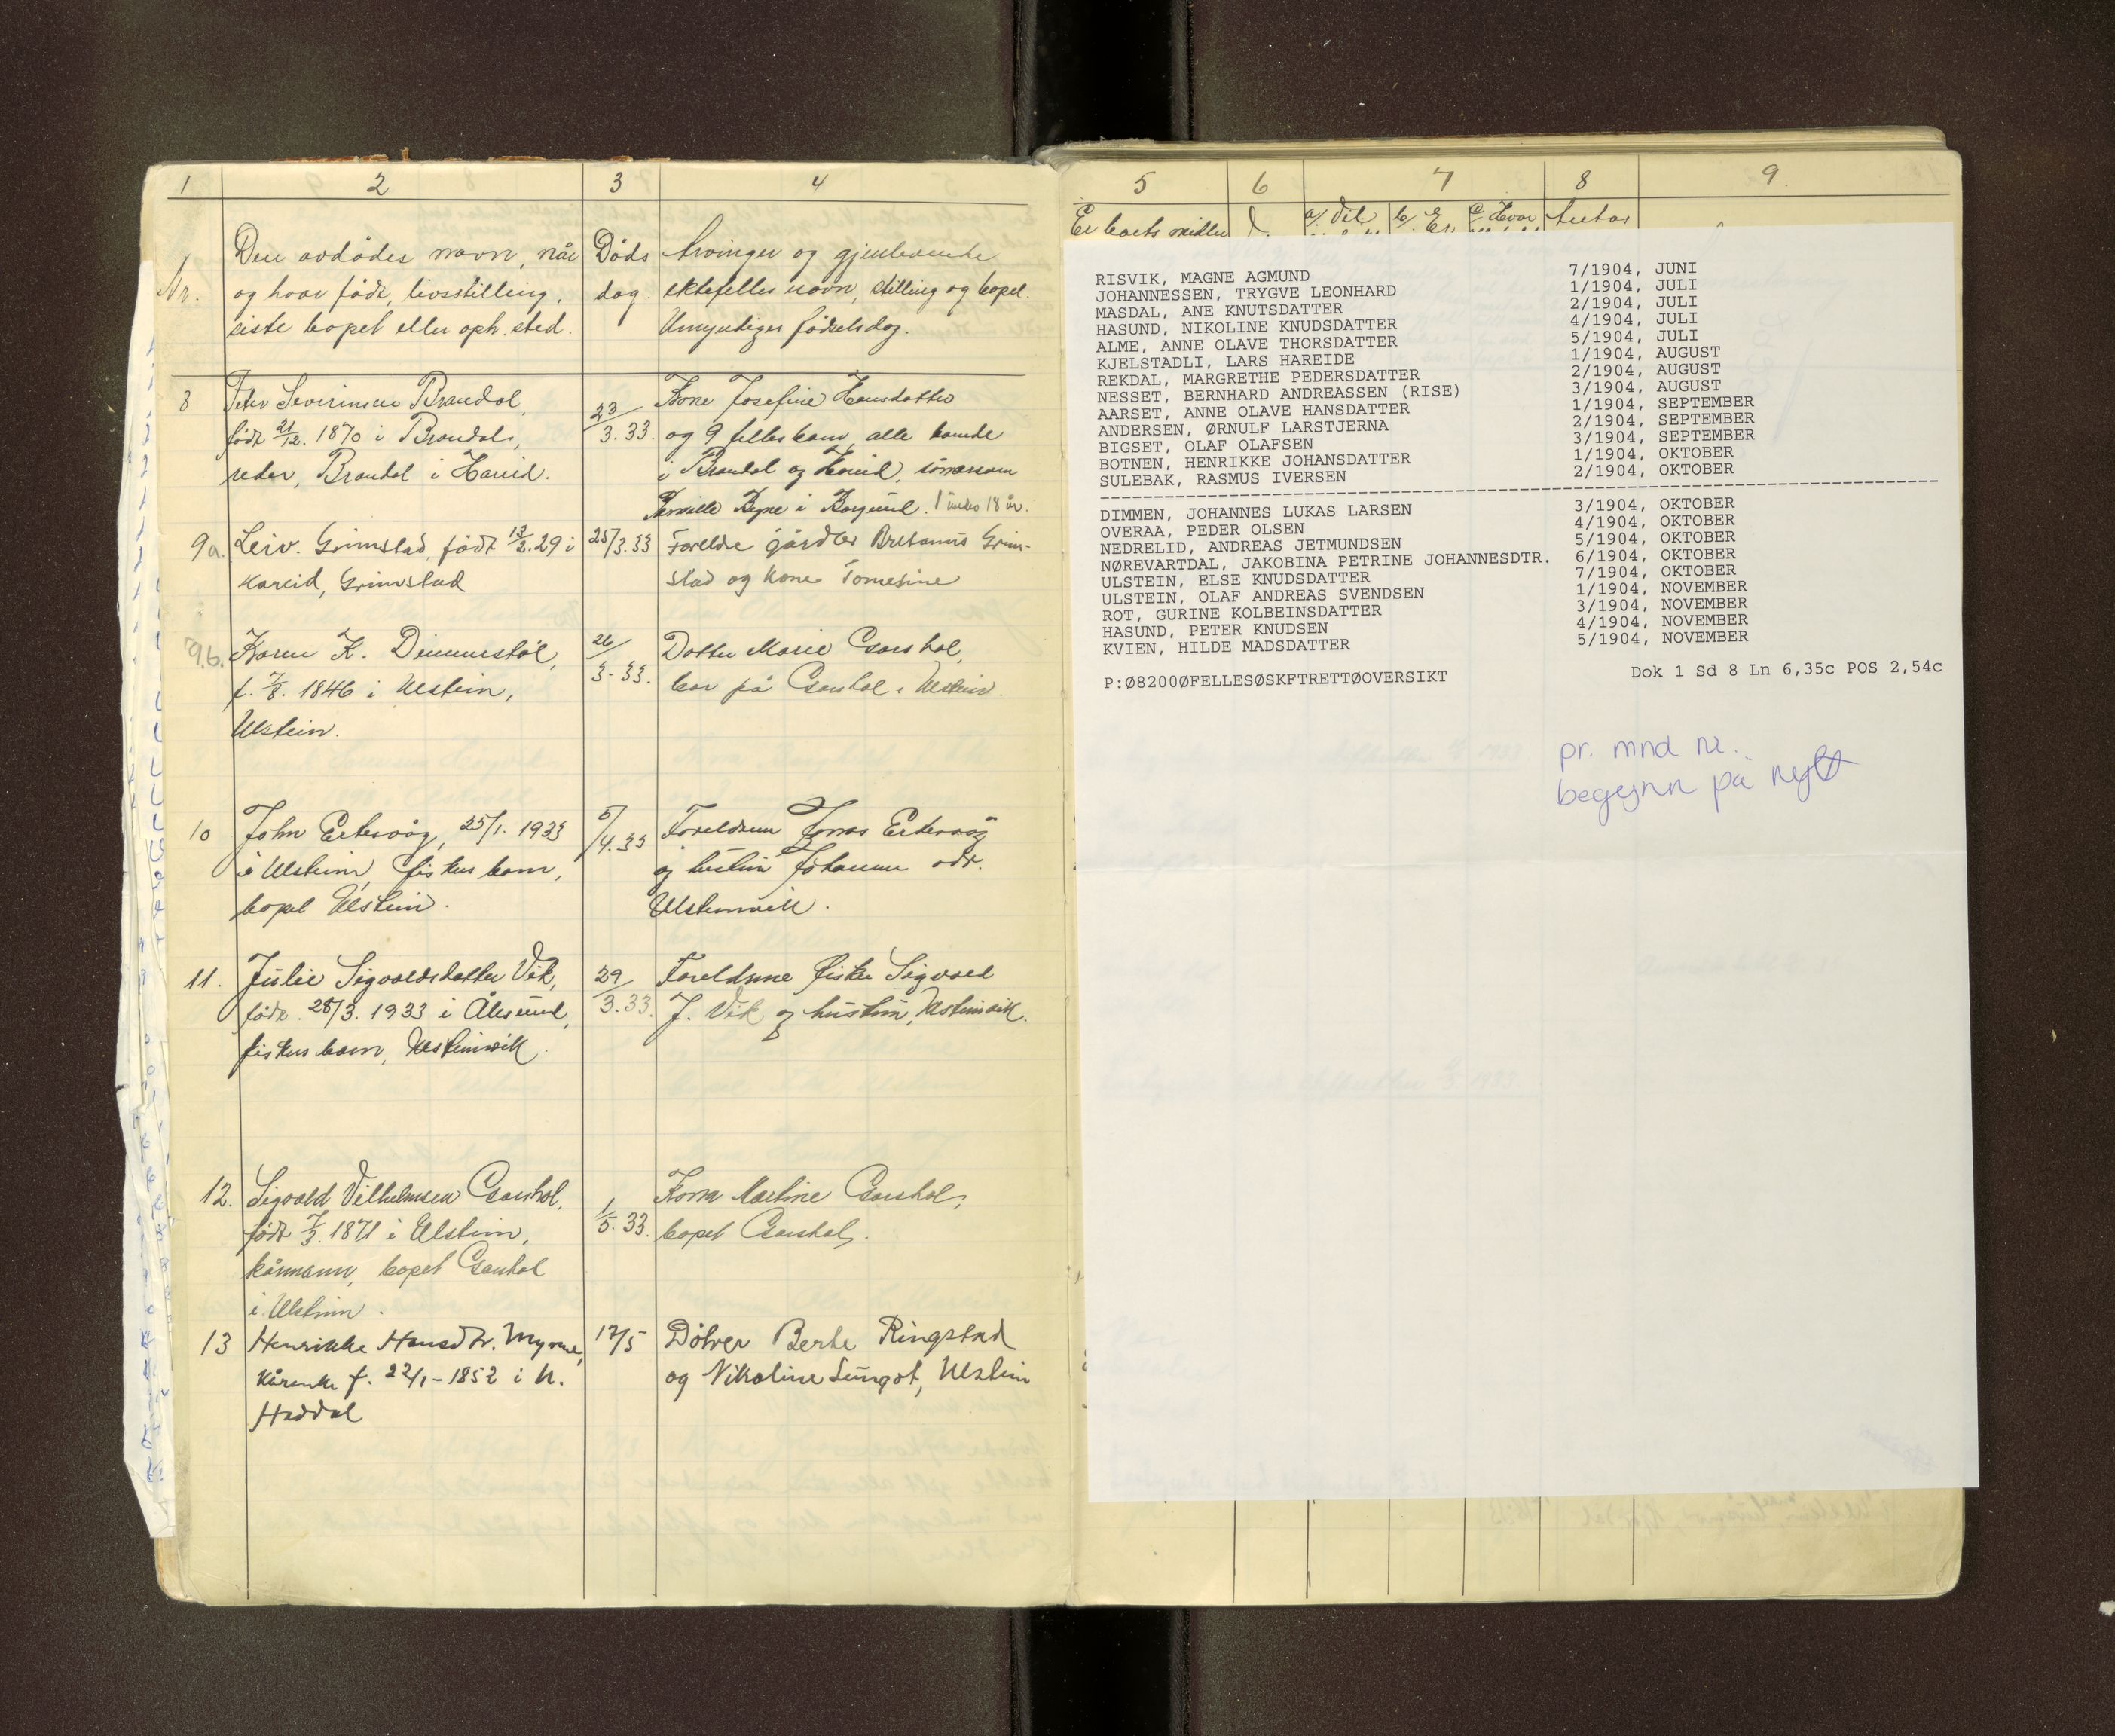 1 2 3 4
Nr.
Den avdødes navn, når
og hvor født, livsstilling,
siste bopel eller oph. sted.
Døds
dag.
Arvinger og gjenlevende
ektefelles navn, stilling og bopel.
Umyndiges fødselsdag.
8
Peter Severinsen Brandal,
født 21/12. 1870 i Brandal,
reder, Brandal i Hareid.
23/3.33.
Kone Josefine Hansdatter
og 9 felles barn, alle
i Brandal og Hareid,
i Borgund. 1 under 18 år.
9a.
Leiv. Grimstad, født 13/2.29 i
Hareid, Grimstad
25/3.33
Foreldre gårdbr Bretanus Grim-
stad og kone Tomesine
9.b.
Karen K. Dimmestøl,
f. 7/8. 1846 i Ulstein,
Ulstein.
26/3-33.
Datter Marie Garshol,
bor på Garshol i Ulstein.
10
John Eiksvåg, 25/1. 1933
i Ulstein, fiskers barn,
bopel Ulstein.
5/4.33
Foreldrene Jonas
og hustru Johanne adr.
Ulsteinvik.
11.
Julie Sigvaldsdatter Vik,
født 28/3. 1933 i Ålesund,
fiskers barn, Ulsteinvik.
29/3.33.
Foreldrene fisker Sigvald
J. Vik og hustru, Ulsteinvik.
12.
Sigvald Vilhelmsen Garshol,
født 7/3. 1871 i Ulstein,
kårmann, bopel Garshol
i Ulstein.
1/5.33.
Kona Martine Garshol,
bopel Garshol.
13
Henrikke Hansdtr. Myrene,
kårenke f. 22/1-1852 i H.
Haddal
17/5
Døtrer Berte Ringstad
og Nikoline Sungot, Ulstein
5 6 7 8 9.
Er boets midler
a/ Del b/ Er c/ Hvor
RISVIK, MAGNE AGMUND 7/1904, JUNI
JOHANNESSEN, TRYGVE LEONHARD 1/1904, JULI
MASDAL, ANE KNUTSDATTER 2/1904, JULI
HASUND, NIKOLINE KNUDSDATTER 4/1904, JULI
ALME, ANNE OLAVE THORSDATTER 5/1904, JULI
KJELSTADLI, LARS HAREIDE 1/1904, AUGUST
REKDAL, MARGRETHE PEDERSDATTER 2/1904, AUGUST
NESSET, BERNHARD ANDREASSEN (RISE) 3/1904, AUGUST
AARSET, ANNE OLAVE HANSDATTER 1/1904, SEPTEMBER
ANDERSEN, ØRNULF LARSTJERNA 2/1904, SEPTEMBER
BIGSET, OLAF OLAFSEN 3/1904, SEPTEMBER
BOTNEN, HENRIKKE JOHANSDATTER 1/1904, OKTOBER
SULEBAK, RASMUS IVERSEN 2/1904, OKTOBER
DIMMEN, JOHANNES LUKAS LARSEN 3/1904, OKTOBER
OVERAA, PEDER OLSEN 4/1904, OKTOBER
NEDRELID, ANDREAS JETMUNDSEN 5/1904, OKTOBER
NØREVARTDAL, JAKOBINA PETRINE JOHANNESDTR. 6/1904, OKTOBER
ULSTEIN, ELSE KNUDSDATTER 7/1904, OKTOBER
ULSTEIN, OLAF ANDREAS SVENDSEN 1/1904, NOVEMBER
ROT, GURINE KOLBEINSDATTER 3/1904, NOVEMBER
HASUND, PETER KNUDSEN 4/1904, NOVEMBER
KVIEN, HILDE MADSDATTER 5/1904, NOVEMBER
P:Ø82000FELLESØSKFTRETTØOVERSIKT Dok 1 Sd 8 Ln 6,35c POS 2,54c
pr. mnd nr.
begynn på nytt